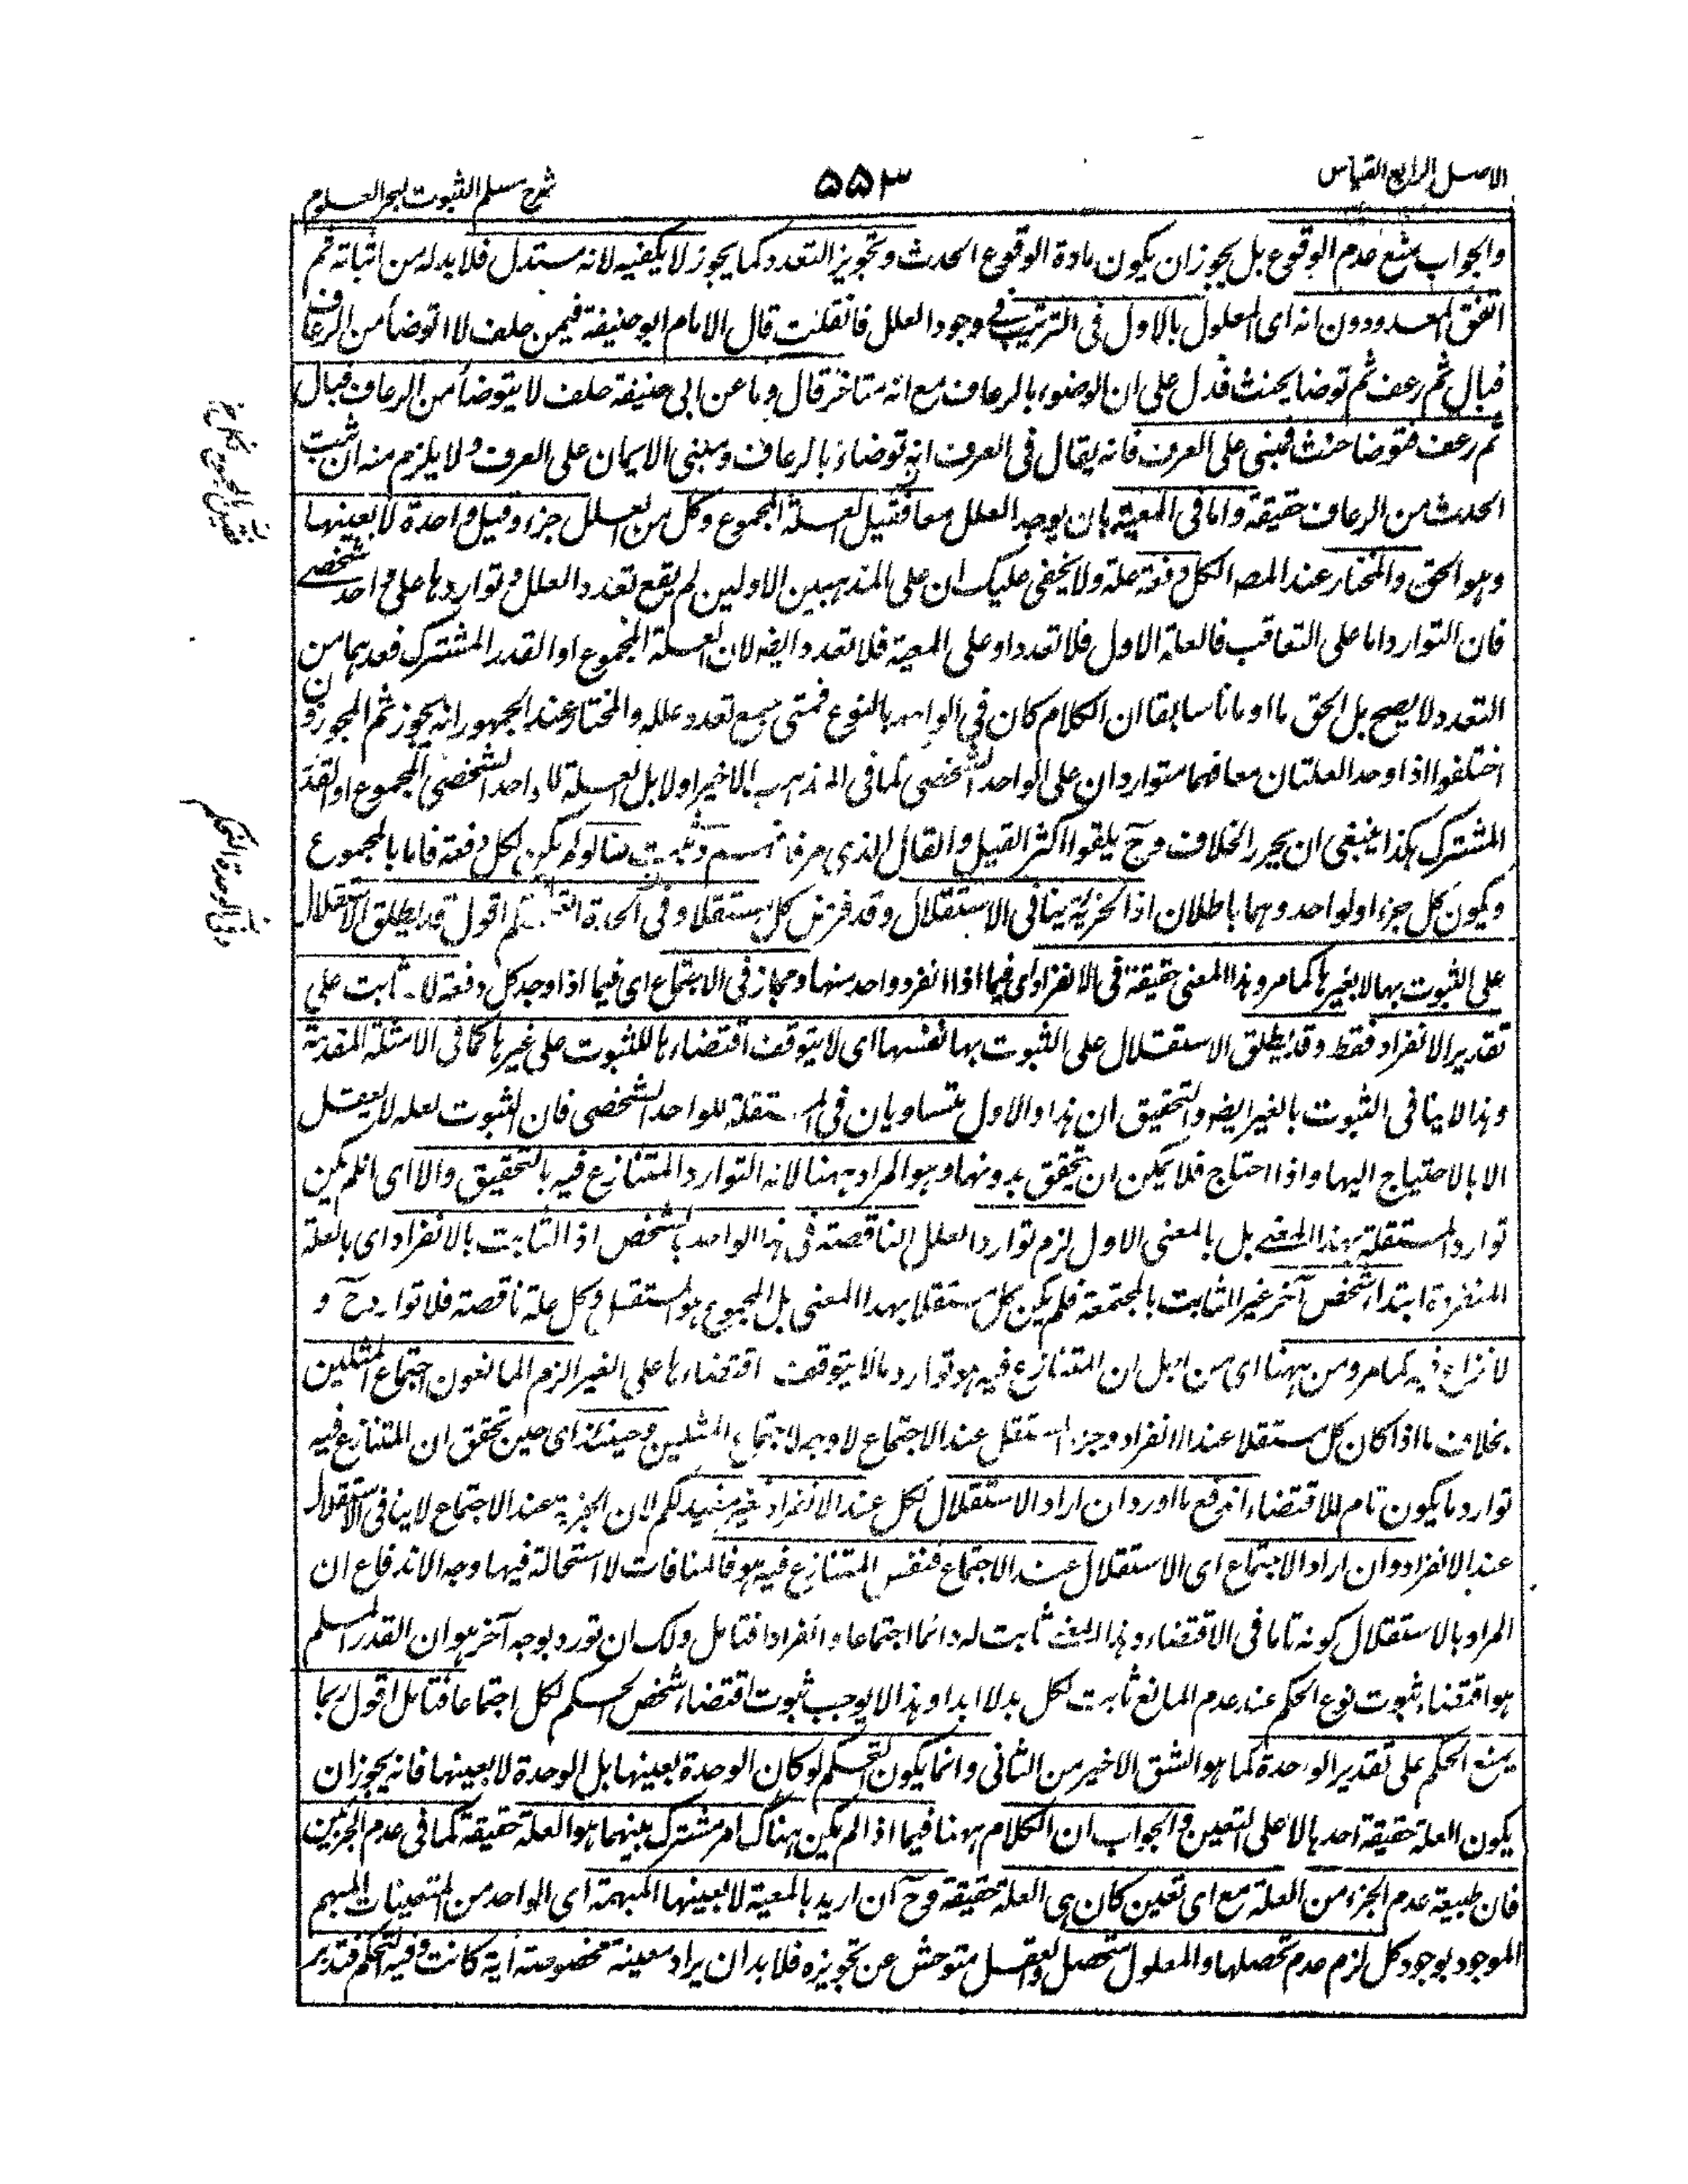 الاصل الرابع القياس
۵۵۳
شرح مسلم الثبوت لبحر العلوم
والجواب بمنع عدم الوقوع بل يجوز ان يكون مادة الوقوع الحدث وتجويز التعدد كما يجوز لا يكفيه لانه مستدل فلا بد له من اثباته ثم
اتفق المعددون انه اى المعلول بالاول فى الترتيب فى وجود العلل فان قلت قال الامام ابو حنيفة فيمن حلف لا اتوضأ من الرعاف
فبال ثم رعف ثم توضا يحنث فدل على ان الوضوء بالرعاف مع انه متاخر قال وما عن ابى حنيفة حلف لا يتوضأ من الرعاف فبال
ثم رعف فتوضا حنث فمبنى على العرف فانه يقال فى العرف انه توضاء بالرعاف ومبنى الايمان على العرف ولا يلزم منه ان يثبت
الحدث من الرعاف حقيقة واما فى المعية بان يوجد العلل معا فقيل العلة المجموع وكل من العلل جزء وقيل واحدة لا بعينها
وهو الحق والمختار عند المصـ الكل دفعة علة ولا يخفى عليك ان على المذهبين الاولين لم يقع تعدد العلل وتواردها على واحد شخصے
فان التوارد اما على التعاقب فالعلة الاول فلا تعدد او على المعية فلا تعدد ايضا لان العلة المجموع او القدر المشترك فعدهما من
التعدد لا يصح بل الحق ما اومانا سابقا ان الكلام كان فى الواحد بالنوع فمتى سمع تعدد علله والمختار عند الجمهور انه يجوز ثم المجوزون
اختلفوا اذا وجد العلتان معا فهما متواردان على الواحد الشخصى كما فى المذهب الاخير اولا بل العلة للواحد الشخصى المجموع او القدر
المشترك هكذا ينبغى ان يحرر الخلاف وحـ يلقوا اكثر القيل والقال الذى مر فافهم وثبت لنا لو لم يكن لكل دفعة فاما بالمجموع
ويكون كل جزءا او لواحد وهما باطلان اذ الجزئية ينافى الاستقلال وقد فرض كل مستقلا وفى الحادة التحكم اقول قد يطلق الاستقلال
على الثبوت بها لا بغيرها كما مر وهذا المعنى حقيقة فى الانفراد اى فيما اذا انفرد واحد منها ومجاز فى الاجتماع اى فيما اذا وجد كل دفعة لا ثابت على
تقدير الانفراد فقط وقد يطلق الاستقلال على الثبوت بها نفسها اى لا يتوقف اقتضاءها للثبوت على غيرها كما فى الامثلة المقدمة
وهذا لا ينافى الثبوت بالغير ايضا والتحقيق ان هذا والاول متساويان فى المستقلة للواحد الشخصى فان الثبوت لعله لا يعقل
الا بالاحتياج اليها واذا احتاج فلا يمكن ان يتحقق بدونها وهو المراد ههنا لانه التوارد المتنازع فيه بالتحقيق والا اى ان لم يكن
توارد المستقلة بهذا المعنے بل بالمعنى الاول لزم توارد العلل الناقصة فى هذا الواحد بالشخص اذ الثابت بالانفراد اى بالعلة
المنفردة ابتداء شخص آخر غير الثابت بالمجتمعة فلم يكن كل مستقلا بهذا المعنى بل المجموع هو المستقل وكل علة ناقصة فلا توارد حـ و
لا نزاع فيه كما مر ومن ههنا اى من اجل ان المتنازع فيه هو توارد ما لا يتوقف اقتضاءها على الغير الزم المانعون اجتماع المثلين
بخلاف ما اذا كان كل مستقلا عند الانفراد وجزء المستقل عند الاجتماع لا وجه لاجتماع المثلين وحينئذ اى حين تحقق ان المتنازع فيه
توارد ما يكون تام للاقتضاء اندفع ما اورد ان اراد الاستقلال لكل عند الانفراد فغير مفيد لكم لان الجزئية عند الاجتماع لا ينافى الاستقلال
عند الانفراد وان اراد الاجتماع اى الاستقلال عند الاجتماع فنفس المتنازع فيه هو فالمنافات لا استحالة فيها وجه الاندفاع ان
المراد بالاستقلال كونه تاما فى الاقتضاء وهذا المعنے ثابت له دائما اجتماعا وانفرادا فتامل ولك ان تورد بوجه آخر هو ان القدر المسلم
هو اقتضاء ثبوت نوع الحكم عند عدم المانع ثابت لكل بدلا ابدا وهذا لا يوجب ثبوت اقتضاء شخص الحكم لكل اجتماعا فتامل اقول ربما
يمنع الحكم على تقدير الوحدة كما هو الشق الاخير من الثانى وانما يكون التحكم لو كان الوحدة بعينها بل الوحدة لا بعينها فانه يجوز ان
يكون العلة حقيقة احدها لا على التعين والجواب ان الكلام ههنا فيما اذا لم يكن هناك امر مشترك بينهما هو العلة حقيقة كما فى عدم الجزئين
فان طبيعة عدم الجزء من العلة مع اى تعين كان هى العلة حقيقة وحـ ان اريد بالمعية لا بعينها المبهمة اى الواحد من المتعينات المبهم
الموجود بوجود كل لزم عدم تحصلها والمعلول متحصل والعقل متوحش عن تجويزه فلا بد ان يراد معينة مخصوصة اية كانت وفيه التحكم فتدبر